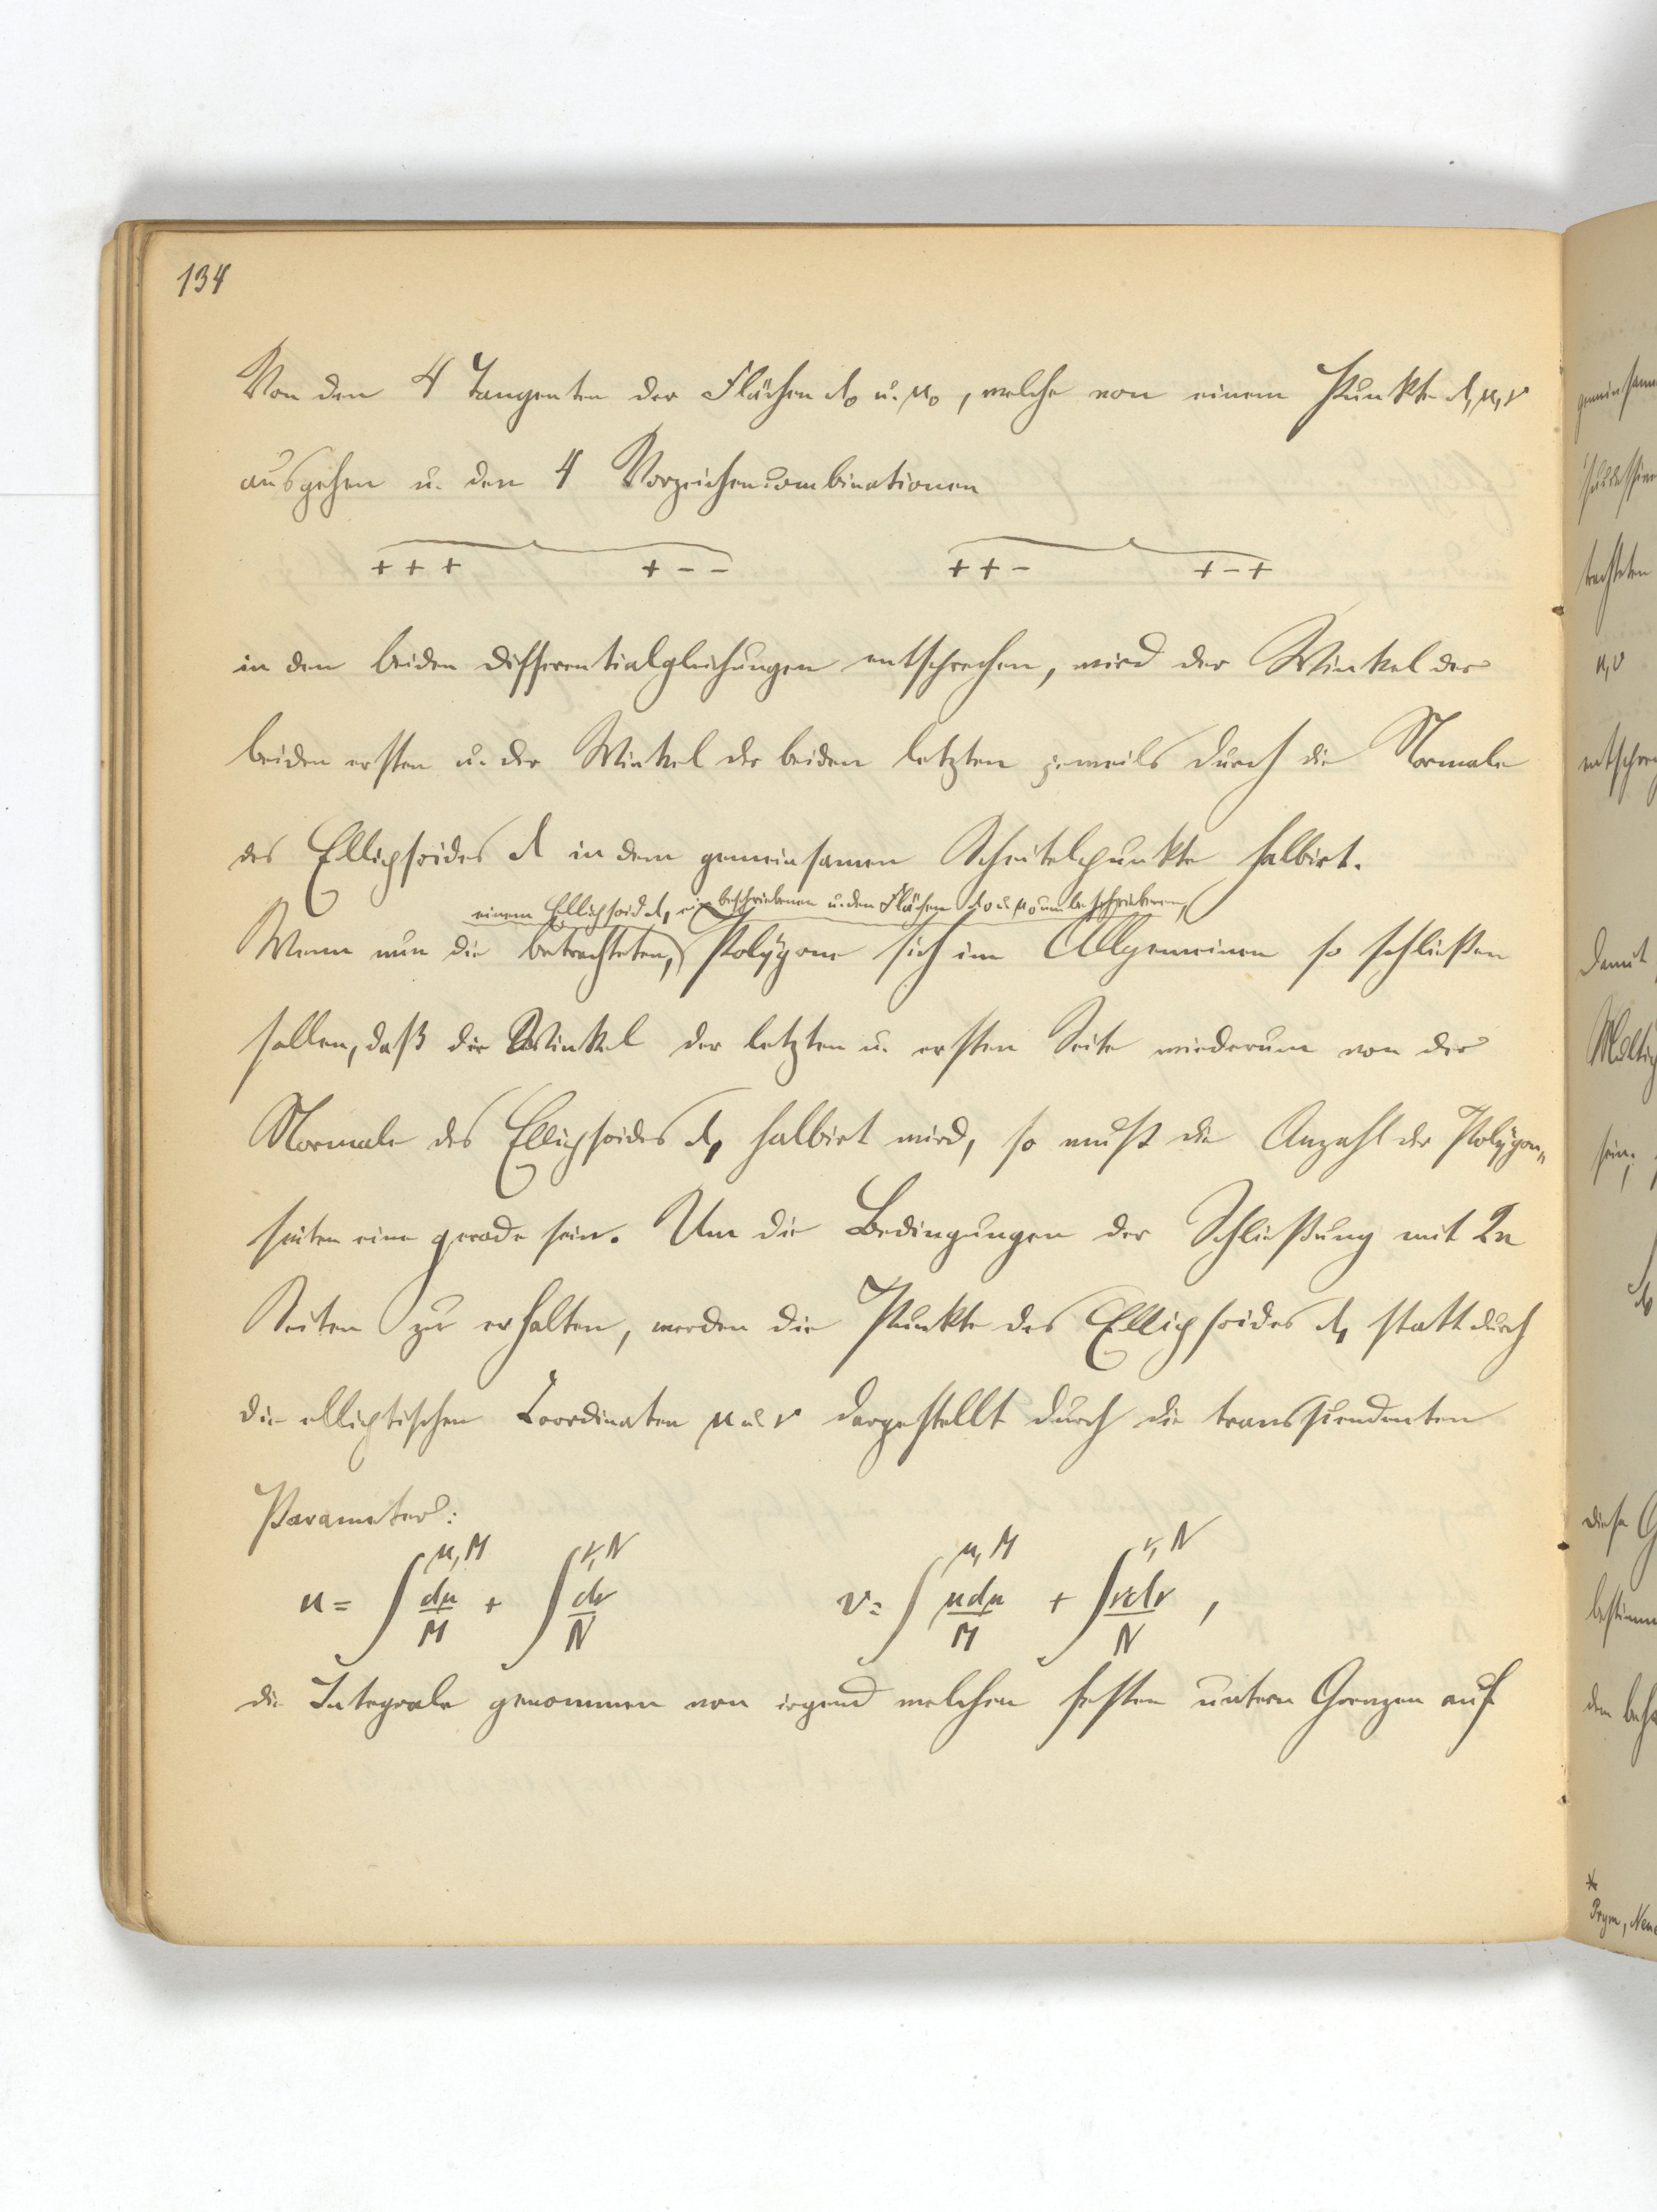 134
Von den 4 Tangenten der Flächen λ₀ u. μ₀, welche von einem Punkte λ, μ, ν
ausgehen u. den 4 Vorzeichencombinationen
+ + + + − − + + − + − +
in den beiden Differentialgleichungen entsprechen, wird der Winkel der
beiden ersten u. der Winkel der beiden letzten jeweils durch die Normale
des Ellipsoides λ in dem gemeinsamen Scheitelpunkte halbirt.
einem Ellipsoid λ, einbeschriebenen u. den Flächen λ₀ u. μ₀ umbeschriebenen,
Wenn nun die betrachteten, Polygone sich im Allgemeinen so schließen
sollen, daß der Winkel der letzten u. ersten Seite wiederum von der
Normale des Ellipsoides λ₁ halbirt wird, so muß die Anzahl der Polygon„
seiten eine gerade sein. Um die Bedingungen der Schließung mit 2n
Seiten zu erhalten, werden die Punkte des Ellipsoides λ₁ statt durch
die elliptischen Coordinaten μ u. ν dargestellt durch die transscendenten
Parameter:
u = ∫^{μ, M} dμ/M + ∫^{ν, N} dν/N v = ∫^{μ, M} μdμ/M + ∫^{ν, N} νdν/N ,
die Integrale genommen von irgend welchen festen untern Grenzen auf